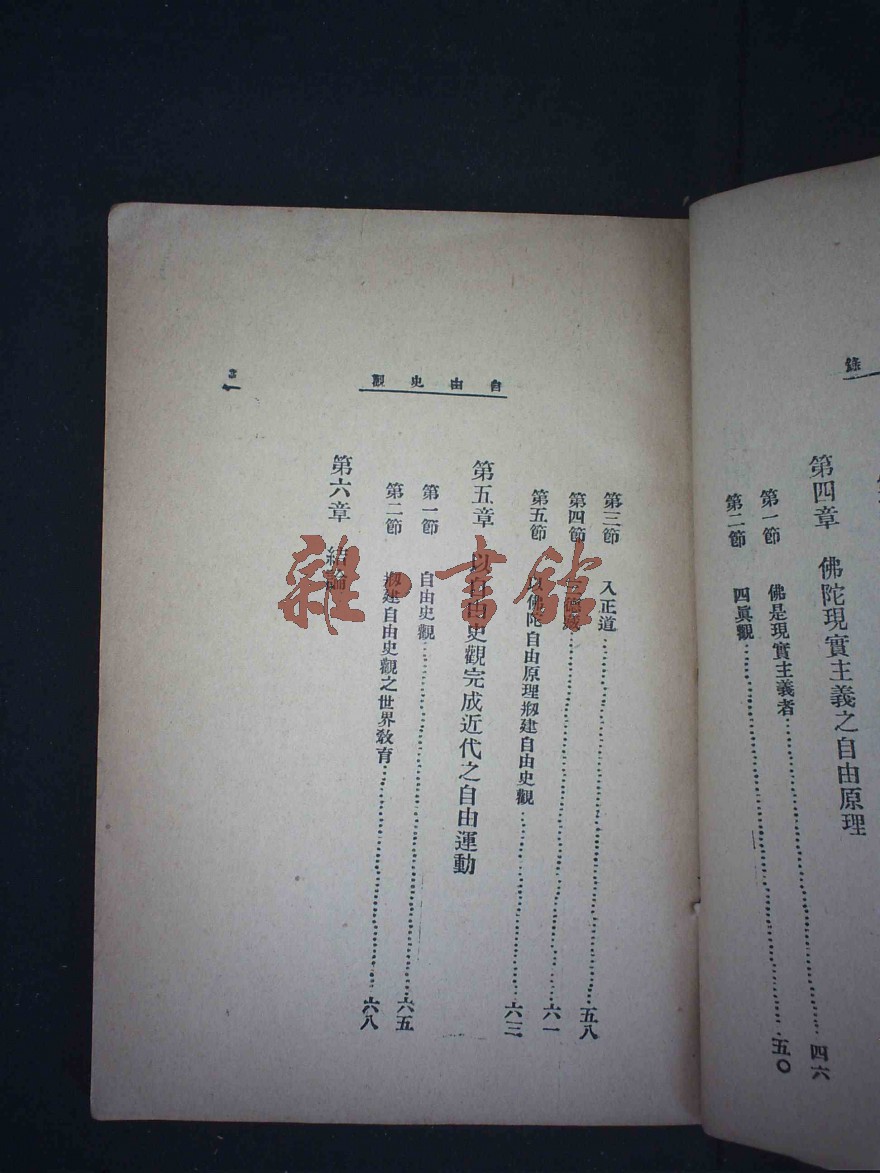 錄
第四章 佛陀現實主義之自由原理
第一節 佛是現實主義者 四六
第二節 四眞觀 五〇
自由史觀
第三節 入正道 五八
第四節 六一
第五節 以佛陀自由原理剏建自由史觀 六三
第五章 以自由史觀完成近代之自由運動
第一節 自由史觀 六五
第二節 剏建自由史觀之世界敎育 六八
第六章 結論
雜·書館